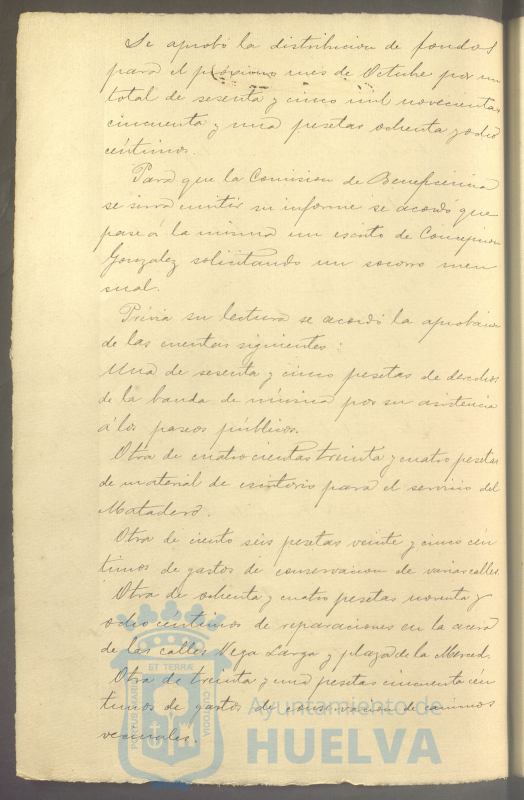 Se aprobó la distribucion de fondos
para el próximo mes de Octubre por un
total de sesenta y cinco mil novecientas
cincuenta y una pesetas ochenta y ocho
céntimos.
Para que la Comision de Beneficencia
se sirva emitir su informe se acordó que
pase á la misma un escrito de Concepcion
Gonzalez solicitando un socorro men
sual.
Prévia su lectura se acordó la aprobacion
de las cuentas siguientes:
Una de sesenta y cinco pesetas de derechos
de la banda de música por su asistencia
á los paseos públicos.
Otra de cuatrocientas treinta y cuatro pesetas
de material de escritorio para el servicio del
Matadero.
Otra de ciento seis pesetas veinte y cinco cén
timos de gastos de conservacion de varias calles.
Otra de ochenta y cuatro pesetas noventa y
ocho céntimos de reparaciones en la acera
de las calles Vega Larga y plaza de la Merced.
Otra de treinta y una pesetas cincuenta cén
timos de gastos de conservacion de caminos
vecinales.
PORTUS MARIS
ET TERRÆ
CUSTODIA
Ayuntamiento de
HUELVA